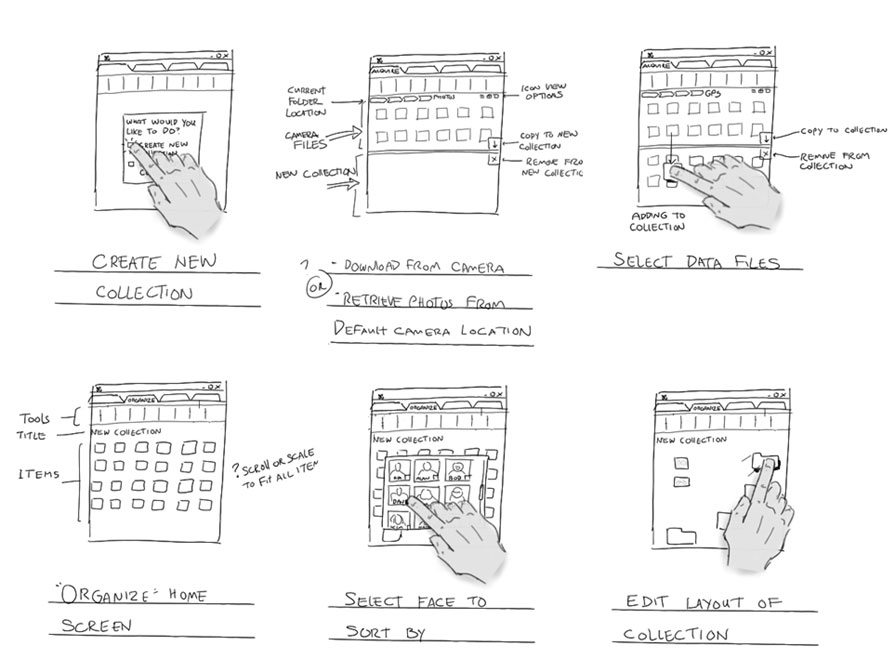 WHAT WOULD YOU
LIKE TO DO?
CREATE NEW
CREATE NEW
COLLECTION
CURRENT
FOLDER
LOCATION
CAMERA
FILES
NEW COLLECTION
ACQUIRE
PHOTOS
ICON VIEW
OPTIONS
COPY TO NEW
COLLECTION
REMOVE FROM
NEW COLLECTIC
? - DOWNLOAD FROM CAMERA
OR
- RETRIEVE PHOTOS FROM
DEFAULT CAMERA LOCATION
ACQUIRE
GPS
COPY TO COLLECTION
REMOVE FROM
COLLECTION
ADDING TO
COLLECTION
SELECT DATA FILES
ORGANIZE
TOOLS
TITLE
NEW COLLECTION
ITEMS
? SCROLL OR SCALE
TO FIT ALL ITEM
"ORGANIZE" HOME
SCREEN
ORGANIZE
NEW COLLECTION
BOB
DAVE
KIM
SELECT FACE TO
SORT BY
ORGANIZE
NEW COLLECTION
EDIT LAYOUT OF
COLLECTION